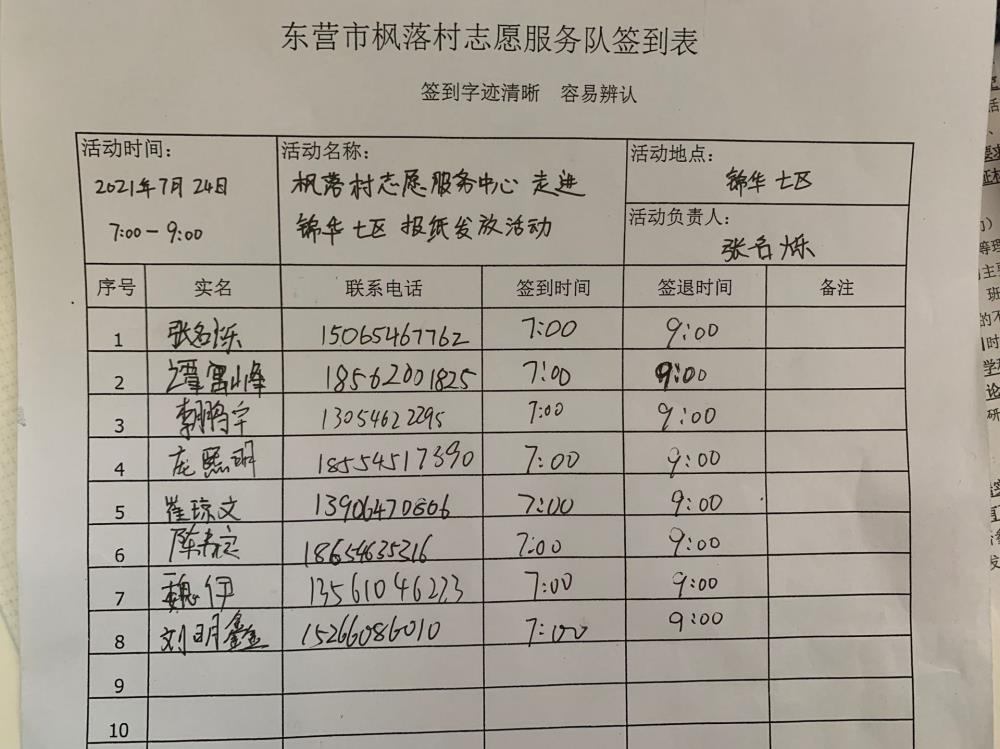 东营市枫落村志愿服务队签到表
签到字迹清晰 容易辨认
活动时间：
2021年7月24日
7:00-9:00
活动名称：
枫落村志愿服务中心走进
锦华七区报纸发放活动
活动地点：
锦华七区
活动负责人：
张名烁
序号 实名 联系电话 签到时间 签退时间 备注
1 张名烁 15065467762 7:00 9:00
2 谭富峰 18562001825 7:00 9:00
3 鹏宇 13054622295 7:00 9:00
4 庞熙明 18554517390 7:00 9:00
5 崔琼文 13906470866 7:00 9:00
6 陈 18654635316 7:00 9:00
7 魏伊 13561046223 7:00 9:00
8 刘明鑫 15266086010 7:00 9:00
9
10